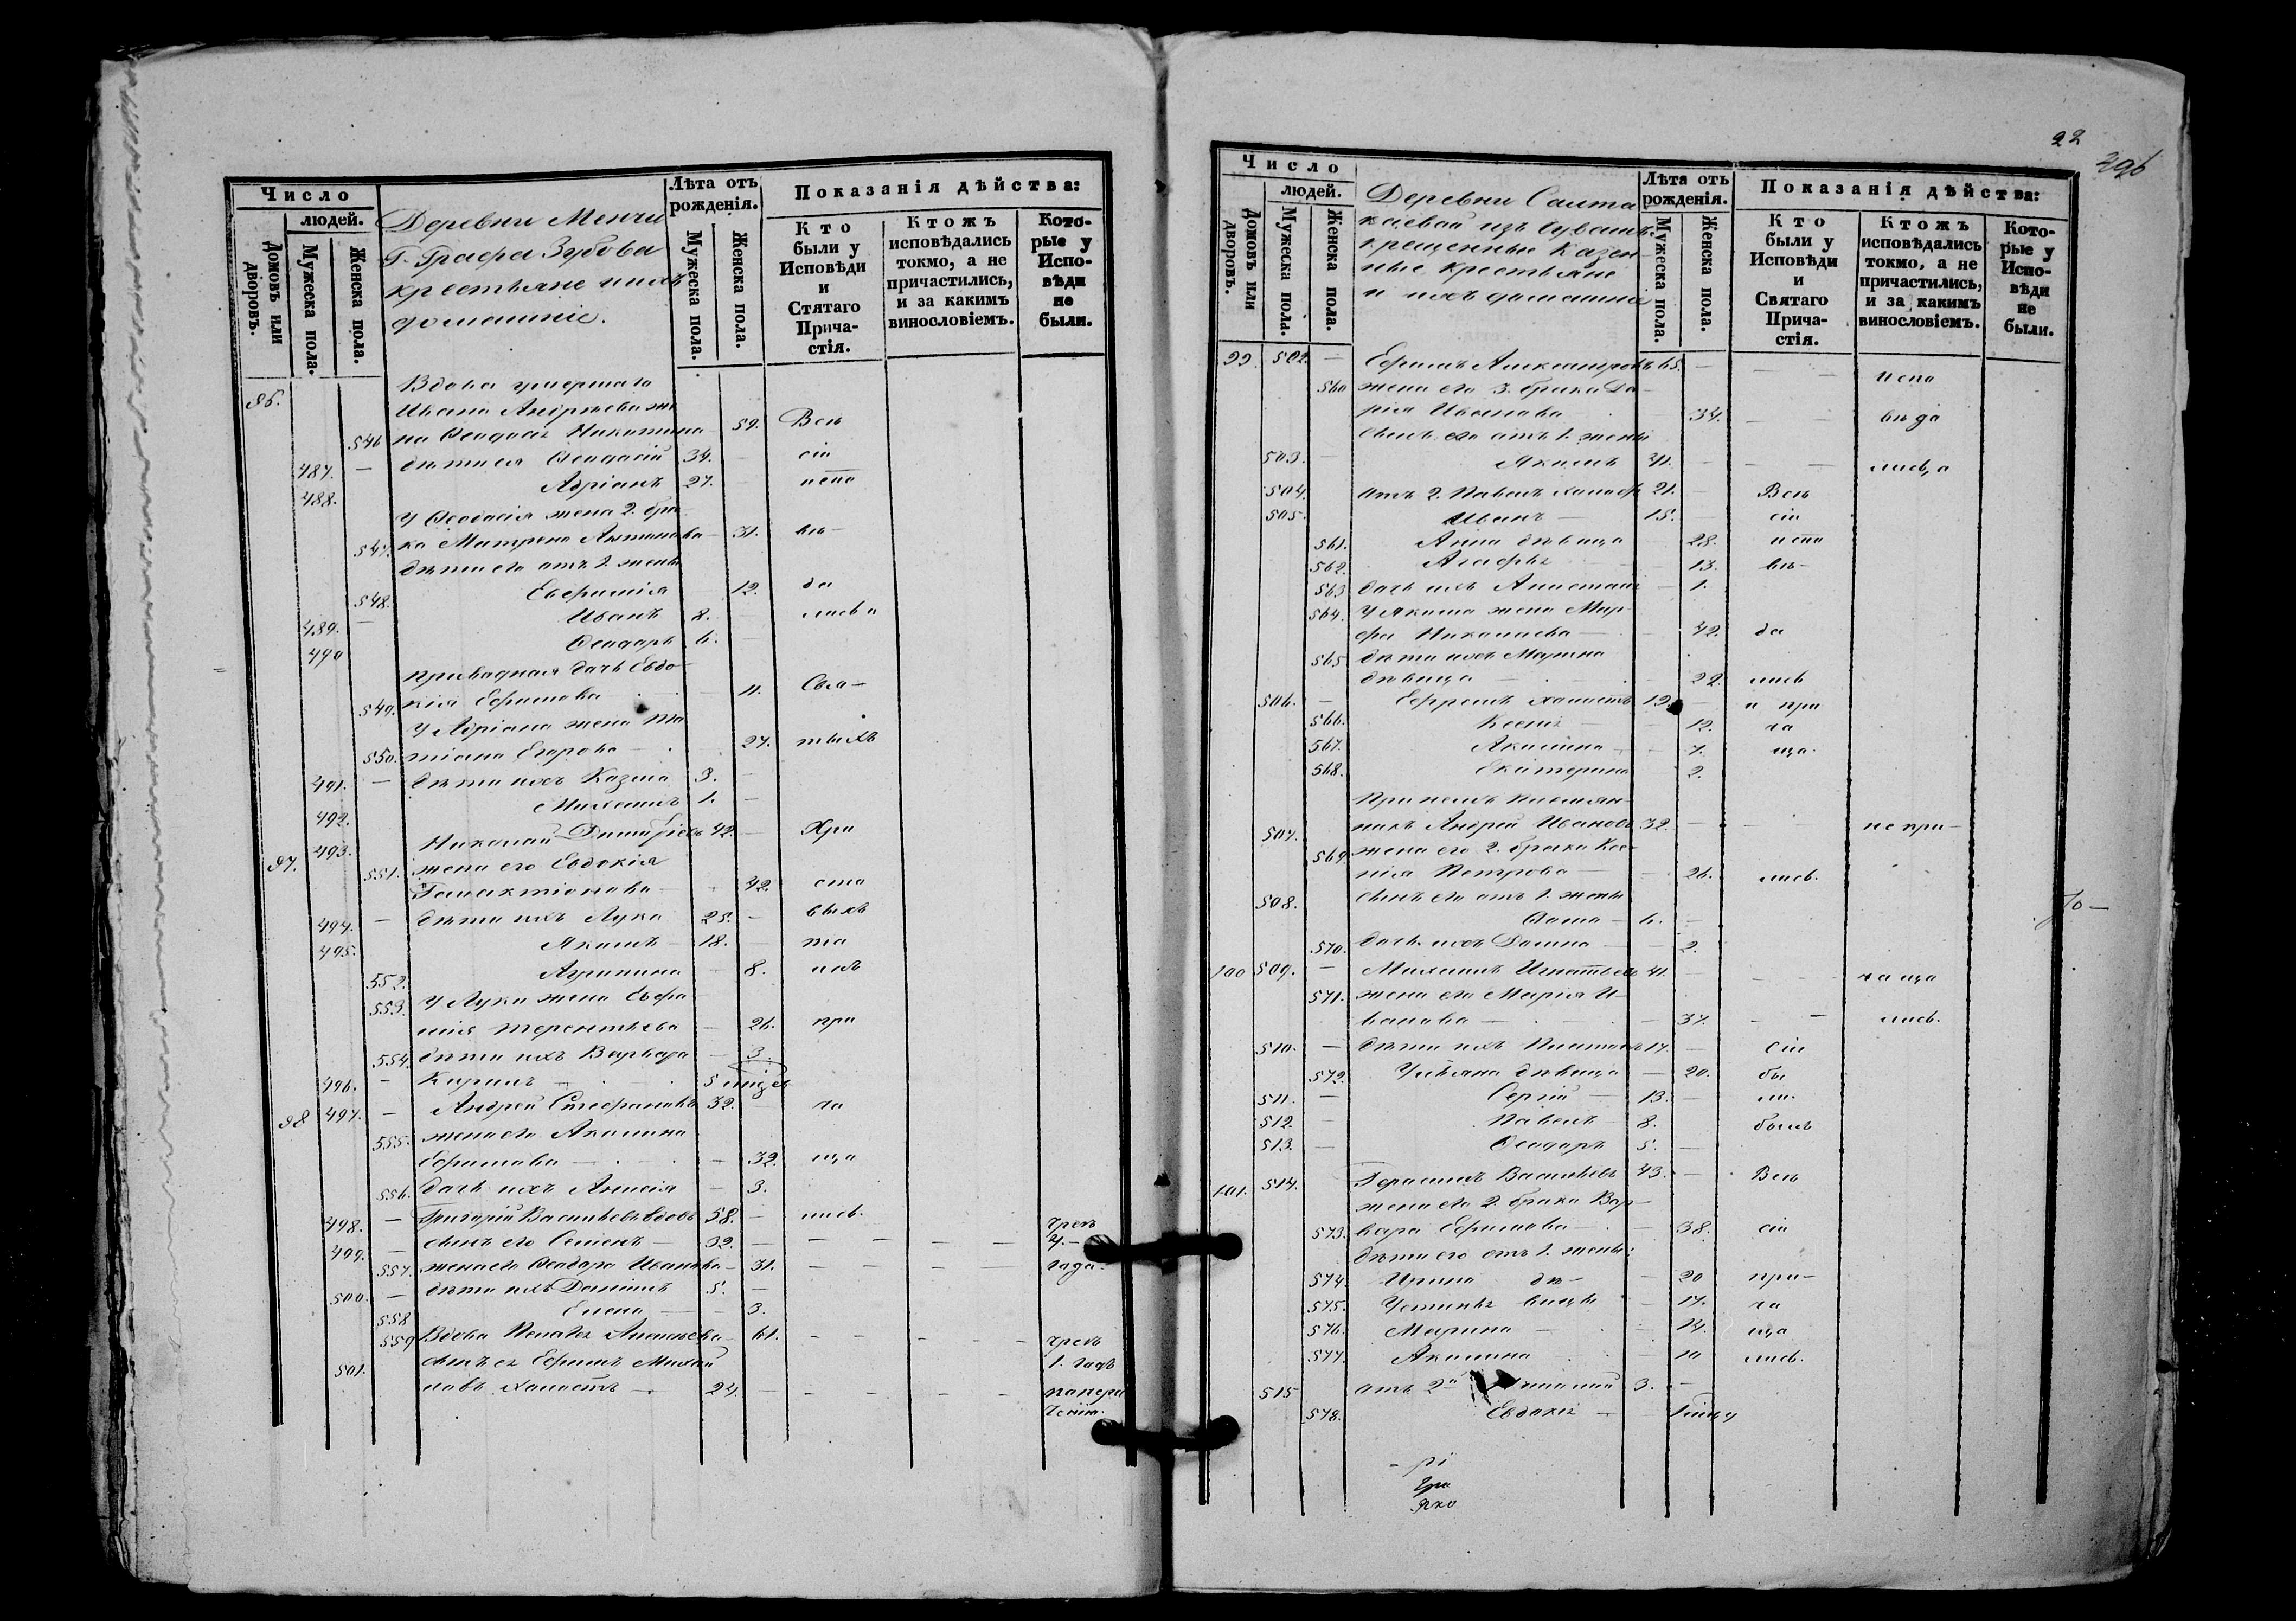 Число
людей.
Домовъ или дворовъ.
Мужеска пола.
Женска пола.
Деревни Менчи
Г. Графа Зубова
крестьяне и ихъ
домашніе.
Лѣта отъ
рожденія.
Мужеска пола.
Женска пола.
Показанія дѣйства:
Кто
были у
Исповѣди
и
Стятаго
Прича-
стія.
Ктожъ
исповѣдались
токмо, а не
причастились,
и за какимъ
винословіемъ.
Кото-
рые у
Испо-
вѣди
не
были.
96. Вдова умершаго
Ивана Андрѣева же
546 на Ѳеодосія Никитина 59. Всѣ
487. — дѣти ея Ѳеодосій 34. — сіи
488. Адріанъ 27. — испо
У Ѳеодосія жена 2. бра
547. ка Матрена Антонова — 31. вѣ —
дѣти его отъ 1. жены
548. Евфимія 12. да
489. — Иванъ 8. лись и
490 Ѳеодоръ 6. —
Приводная дочь Евдо-
549. кія Ефимова 11. Свя —
У Адріана жена Та
550. тіана Егорова — 27. тыхъ
491. — дѣти ихъ Козма 3. —
492. Михаилъ 1. —
97. 493. Николай Димитріевъ 42. — Хри
551. жена его Евдокія
Галактіонова — 42. сто
494. — дѣти ихъ Лука 25. — выхъ
495. Якимъ — 18. та
552. Агрипина — 8. инъ
553. У Луки жена Евфи
мія Терентьева — 26. при
554. дѣти ихъ Варвара — 3.
496. — Кирилъ 5
98 497. — Андрей Стефановъ 32. — ча
555. жена его Акилина
Ефимова — 32. ща
556. дочь ихъ Анисія — 3.
498. — Григорій Васильевъ вдовъ 58. — лись.
499. — сынъ его Семенъ — 32. — — — — — чрезъ
557. жена его Ѳеодора Иванова — 31. — — — — года
500. — дѣти ихъ Даніилъ 5. —
558 Елена — — 3.
559 Вдова Пелагія Ананьева — 61. — — — — — чрезъ
501. сынъ ея Ефимъ Михай 1. годъ
ловъ холостъ — 24. — — — — — понера
ченію.
22
296
Число
людей.
Домовъ или дворовъ.
Мужеска пола.
Женска пола.
Деревни Салта
каевой изъ Чувашъ
крещенные казен-
ные крестьяне
и ихъ домашніе
Лѣта отъ
рожденія.
Мужеска пола.
Женска пола.
Показанія дѣйства:
Кто
были у
Исповѣди
и
Святаго
Прича-
стія.
Ктожъ
исповѣдались
токмо, а не
причастились,
и за какимъ
винословіемъ.
Кото-
рые у
Испо-
вѣди
не
были.
99. 502. — Ефимъ Александровъ 65. — — — испо
560 жена его 3. брака Да-
рія Иванова 34. — — вѣда
сынъ его отъ 1. жены
503. — Якимъ 41. — — — лись, а
504. отъ 2. Павелъ холост 21. — Всѣ
505. Иванъ — 15. — сіи
561. Анна дѣвица 28. испо
562. Агафья 13. вѣ —
563 дочь ихъ — 1.
564. У Якима жена Мар-
фа Николаева — 42. да
565 дѣти ихъ Марина
дѣвица — 22. лись
506. — Ефремъ холостъ 19. — и при
566. Ксенія — 12. ча
567. Акилина — 7. ща.
568. Екатерина 2.
При немъ племян-
507. никъ Андрей Ивановъ 32. — — не при —
569. жена его 2. брака Ксе-
нія Петрова — 26. лись.
508. сынъ его отъ 1. жены
Ѳома — 6. —
570. дочь ихъ Домна — — 2.
100 509. — Михаилъ Игнатьевъ 41. — — — ча ща
571. жена его Марія И-
ванова — — 37. — — лись.
510. — дѣти ихъ Платонъ 17. — Сіи
572. Ульяна дѣвица — 20. бы
511. — Сергій — 13. — ли.
512. — Павелъ 8. были
513. — Ѳеодоръ 5. —
101. 514. Герасимъ Васильевъ 43. — Всѣ
жена его 2. брака Вар-
573. вара Ефимова — — 38. сіи
дѣти его отъ 1. жены:
574. Ирина дѣ — — 20 при —
575. Устинья вицы — 17. ча
576. Марина — — 14. ща
577. Акилина — 10 лись.
515 отъ 2й 3. —
578. Евдокія —